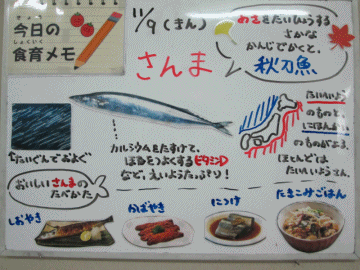 今日の
食育メモ
しょくいく
11/9(きん)
さんま
あきをたいひょうする
さかな
かんじでかくと、
秋刀魚
カルシウムをたすけて、
ほねをつよくするビタミンD
など、えいようたっぷり!
たいぐんでおよぐ
たいへいよう
のものと、
にほんかい
のものがいます。
ほとんどは
たいへいようさん。
おいしいさんまの
たべかた
しおやき
かばやき
につけ
たきこみごはん